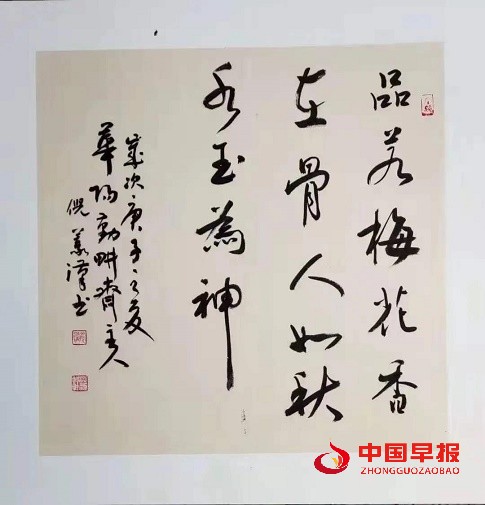 品若梅花香
在骨人如秋
水玉为神
岁次庚子之夏
华阳勤畊斋主人
倪
汉书
中国早报
ZHONGGUOZAOBAO